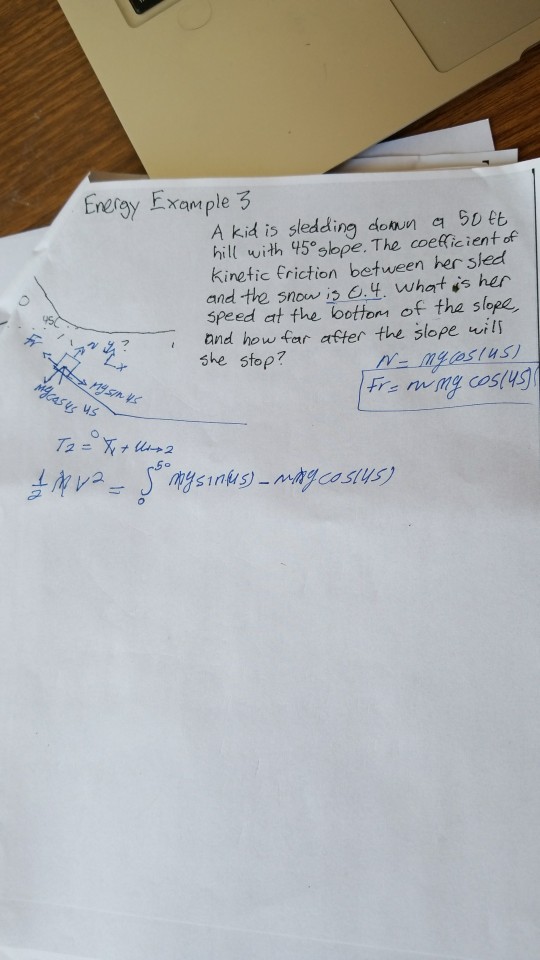 Energy Example 3
A kid is sledding down a 50 ft
hill with 45° slope. The coefficient of
kinetic friction between her sled
and the snow is 0.4. What is her
speed at the bottom of the slope,
and how far after the slope will
she stop?
N = mg cos(45)
Fr = μ mg cos(45)
45
?
Fr
N
y
x
mg sin 45
mg cos 45
45
T2 = T1 + U1→2
0
1/2 m V² = ∫ mg sin(45) - μ mg cos(45)
50
0